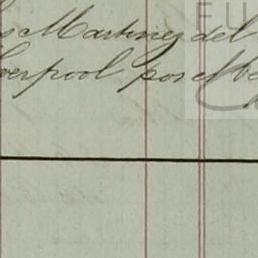 s Martinez del
verpool por el
FU